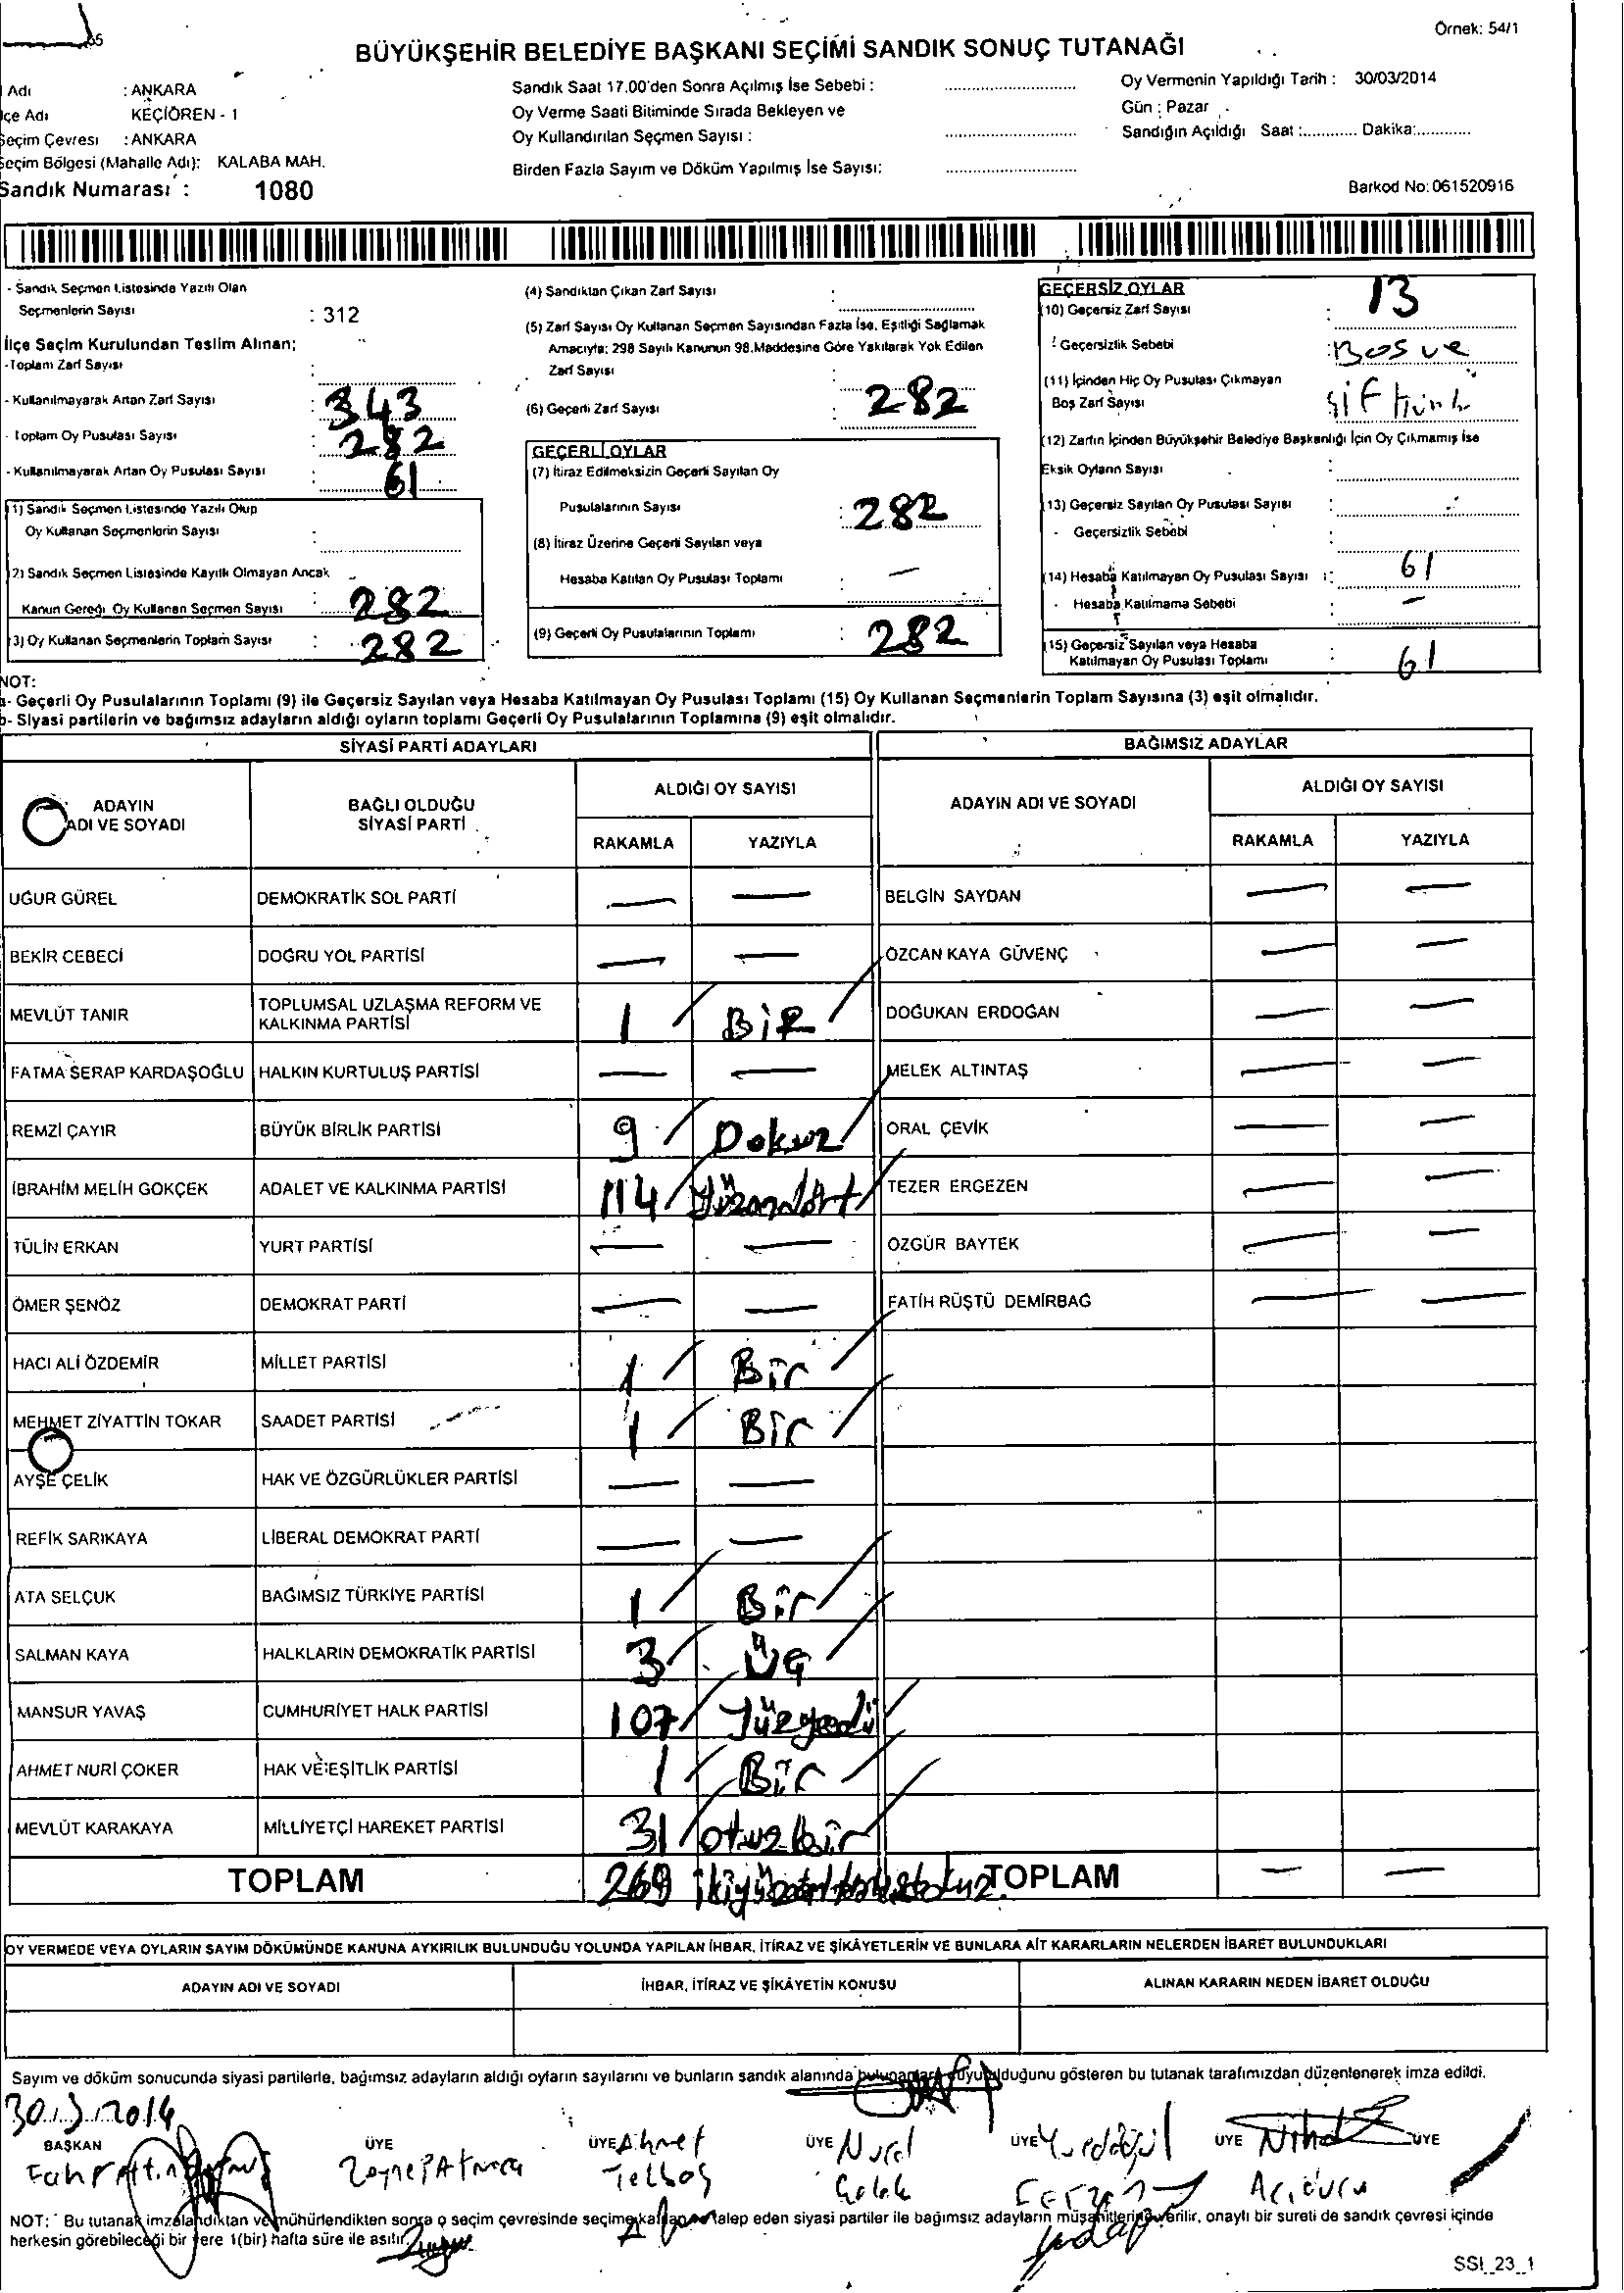 Örnek: 54/1
BÜYÜKŞEHİR BELEDİYE BAŞKANI SEÇİMİ SANDIK SONUÇ TUTANAĞI
Adı : ANKARA
İlçe Adı KEÇİÖREN - 1
Seçim Çevresi : ANKARA
Seçim Bölgesi (Mahalle Adı): KALABA MAH.
Sandık Numarası : 1080
Sandık Saat 17.00'den Sonra Açılmış İse Sebebi :
Oy Verme Saati Bitiminde Sırada Bekleyen ve
Oy Kullandırılan Seçmen Sayısı :
Birden Fazla Sayım ve Döküm Yapılmış İse Sayısı:
Oy Vermenin Yapıldığı Tarih : 30/03/2014
Gün : Pazar
Sandığın Açıldığı Saat :............ Dakika:............
Barkod No: 061520916
- Sandık Seçmen Listesinde Yazılı Olan
Seçmenlerin Sayısı : 312
İlçe Seçim Kurulundan Teslim Alınan;
-Toplam Zarf Sayısı :
- Kullanılmayarak Artan Zarf Sayısı : 343
- Toplam Oy Pusulası Sayısı : 282
- Kullanılmayarak Artan Oy Pusulası Sayısı : 61
(1) Sandık Seçmen Listesinde Yazılı Olup
Oy Kullanan Seçmenlerin Sayısı :
(2) Sandık Seçmen Listesinde Kayıtlı Olmayan Ancak
Kanun Gereği Oy Kullanan Seçmen Sayısı : 282
(3) Oy Kullanan Seçmenlerin Toplam Sayısı : 282
(4) Sandıktan Çıkan Zarf Sayısı :
(5) Zarf Sayısı Oy Kullanan Seçmen Sayısından Fazla İse, Eşitliği Sağlamak
Amacıyla; 298 Sayılı Kanunun 98.Maddesine Göre Yakılarak Yok Edilen
Zarf Sayısı :
(6) Geçerli Zarf Sayısı : 282
GEÇERLİ OYLAR
(7) İtiraz Edilmeksizin Geçerli Sayılan Oy
Pusulalarının Sayısı : 282
(8) İtiraz Üzerine Geçerli Sayılan veya
Hesaba Katılan Oy Pusulası Toplamı : —
(9) Geçerli Oy Pusulalarının Toplamı : 282
GEÇERSİZ OYLAR
(10) Geçersiz Zarf Sayısı : 13
- Geçersizlik Sebebi : Bos ve
(11) İçinden Hiç Oy Pusulası Çıkmayan
Boş Zarf Sayısı
(12) Zarfın İçinden Büyükşehir Belediye Başkanlığı İçin Oy Çıkmamış İse
Eksik Oyların Sayısı :
(13) Geçersiz Sayılan Oy Pusulası Sayısı :
- Geçersizlik Sebebi :
(14) Hesaba Katılmayan Oy Pusulası Sayısı : 61
- Hesaba Katılmama Sebebi : —
(15) Geçersiz Sayılan veya Hesaba
Katılmayan Oy Pusulası Toplamı : 61
NOT:
a- Geçerli Oy Pusulalarının Toplamı (9) ile Geçersiz Sayılan veya Hesaba Katılmayan Oy Pusulası Toplamı (15) Oy Kullanan Seçmenlerin Toplam Sayısına (3) eşit olmalıdır.
b- Siyasi partilerin ve bağımsız adayların aldığı oyların toplamı Geçerli Oy Pusulalarının Toplamına (9) eşit olmalıdır.
SİYASİ PARTİ ADAYLARI
ADAYIN ADI VE SOYADI BAĞLI OLDUĞU SİYASİ PARTİ ALDIĞI OY SAYISI
RAKAMLA YAZIYLA
UĞUR GÜREL DEMOKRATİK SOL PARTİ — —
BEKİR CEBECİ DOĞRU YOL PARTİSİ — —
MEVLÜT TANIR TOPLUMSAL UZLAŞMA REFORM VE KALKINMA PARTİSİ 1 / BİR /
FATMA SERAP KARDAŞOĞLU HALKIN KURTULUŞ PARTİSİ — —
REMZİ ÇAYIR BÜYÜK BİRLİK PARTİSİ 9 / Dokuz /
İBRAHİM MELİH GÖKÇEK ADALET VE KALKINMA PARTİSİ 114 / Yüzondört /
TÜLİN ERKAN YURT PARTİSİ — —
ÖMER ŞENÖZ DEMOKRAT PARTİ — —
HACI ALİ ÖZDEMİR MİLLET PARTİSİ 1 / Bir /
MEHMET ZİYATTİN TOKAR SAADET PARTİSİ 1 / Bir /
AYŞE ÇELİK HAK VE ÖZGÜRLÜKLER PARTİSİ — —
REFİK SARIKAYA LİBERAL DEMOKRAT PARTİ — —
ATA SELÇUK BAĞIMSIZ TÜRKİYE PARTİSİ 1 / Bir /
SALMAN KAYA HALKLARIN DEMOKRATİK PARTİSİ 3 / Üç /
MANSUR YAVAŞ CUMHURİYET HALK PARTİSİ 107 / Yüzyedi /
AHMET NURİ ÇOKER HAK VE EŞİTLİK PARTİSİ 1 / Bir /
MEVLÜT KARAKAYA MİLLİYETÇİ HAREKET PARTİSİ 31 / otuzbir /
TOPLAM 269
BAĞIMSIZ ADAYLAR
ADAYIN ADI VE SOYADI ALDIĞI OY SAYISI
RAKAMLA YAZIYLA
BELGİN SAYDAN — —
ÖZCAN KAYA GÜVENÇ — —
DOĞUKAN ERDOĞAN — —
MELEK ALTINTAŞ — —
ORAL ÇEVİK — —
TEZER ERGEZEN — —
ÖZGÜR BAYTEK — —
FATİH RÜŞTÜ DEMİRBAĞ — —
TOPLAM — —
OY VERMEDE VEYA OYLARIN SAYIM DÖKÜMÜNDE KANUNA AYKIRILIK BULUNDUĞU YOLUNDA YAPILAN İHBAR, İTİRAZ VE ŞİKÂYETLERİN VE BUNLARA AİT KARARLARIN NELERDEN İBARET BULUNDUKLARI
ADAYIN ADI VE SOYADI İHBAR, İTİRAZ VE ŞİKÂYETİN KONUSU ALINAN KARARIN NEDEN İBARET OLDUĞU
Sayım ve döküm sonucunda siyasi partilerle, bağımsız adayların aldığı oyların sayılarını ve bunların sandık alanında olduğunu gösteren bu tutanak tarafımızdan düzenlenerek imza edildi.
30.3.2014
BAŞKAN ÜYE ÜYE Ahmet ÜYE ÜYE ÜYE ÜYE
NOT: Bu tutanak imzalandıktan ve mühürlendikten sonra o seçim çevresinde seçime talep eden siyasi partiler ile bağımsız adayların müşahitlerine verilir, onaylı bir sureti de sandık çevresi içinde
herkesin görebileceği bir yere 1(bir) hafta süre ile asılır.
SSI_23_1